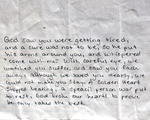 God saw you were getting tired,
and a cure was not to be, so he put
his arms around you, and whispered
"come with me" With careful eye, we
watched you suffer, and saw you fade
away although we loved you dearly, we
could not make you stay. A Golden Heart
Stopped beating, a special person was put
to rest, God broke our hearts to prove
he only takes the best.